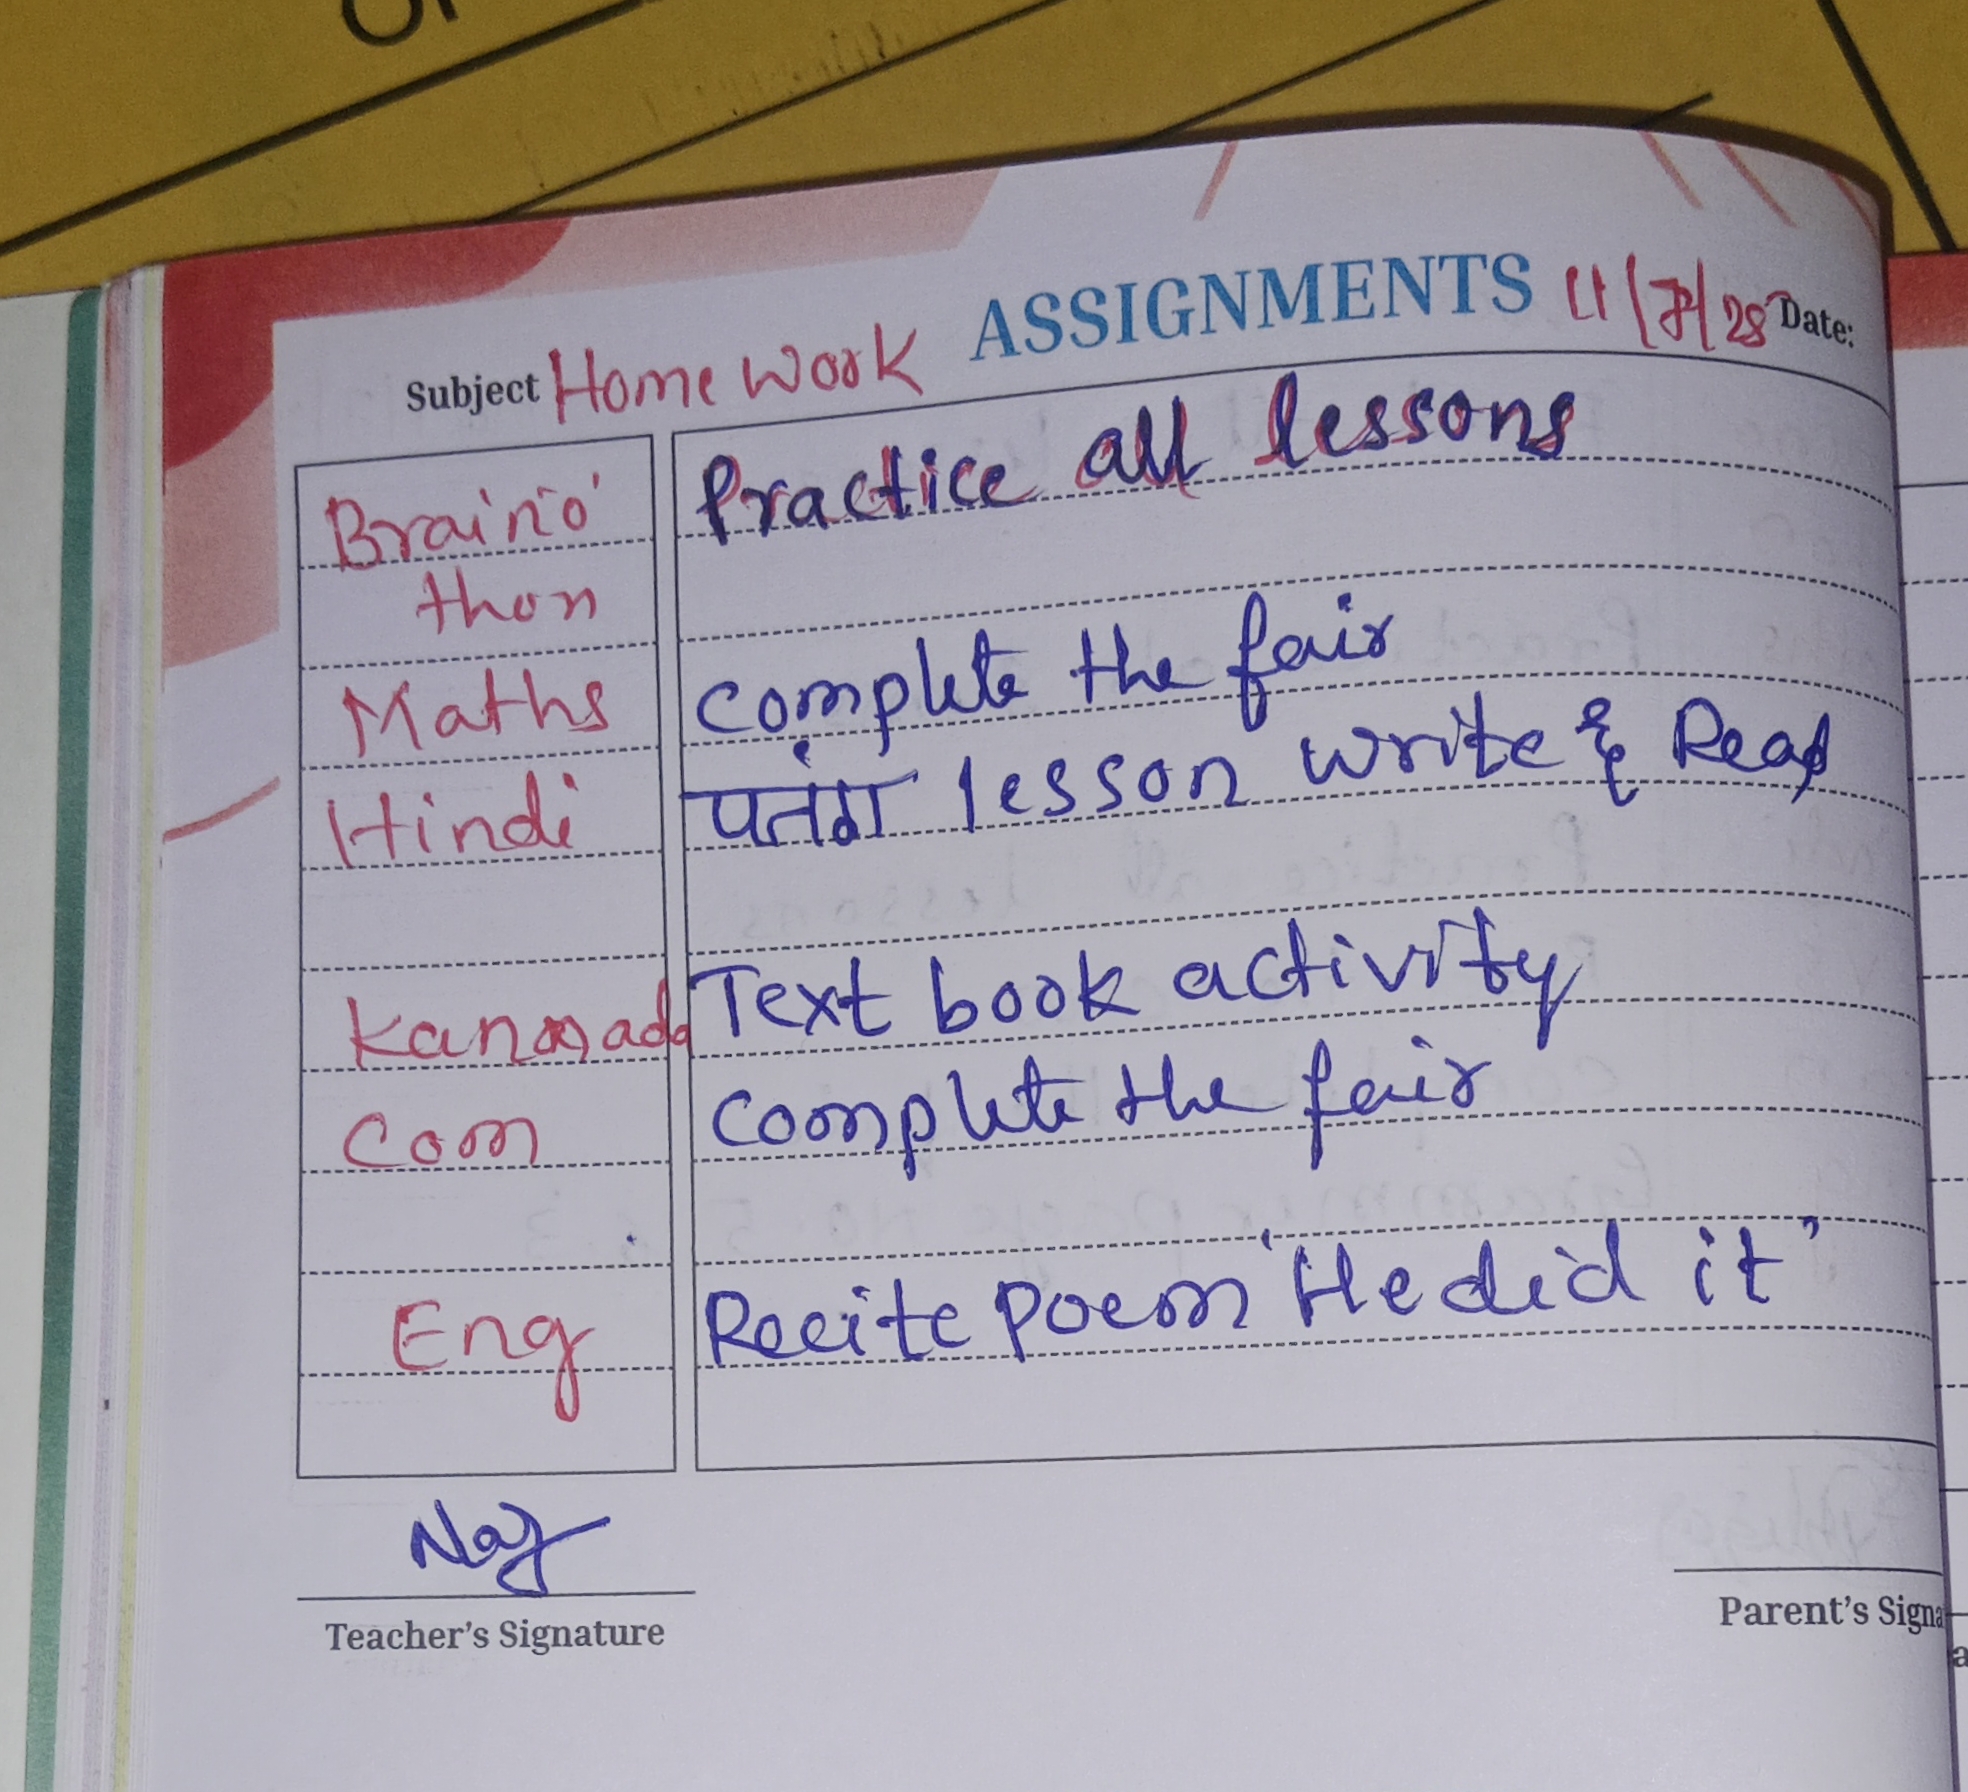 ASSIGNMENTS
Subject Home Work Date:
Braino' Practice all lessons
thon
Maths Complete the fair
Hindi पतंग lesson write & Read
Kannada Text book activity
Com Complete the fair
Eng Recite poem 'He did it'
Naz
Teacher's Signature
Parent's Signa